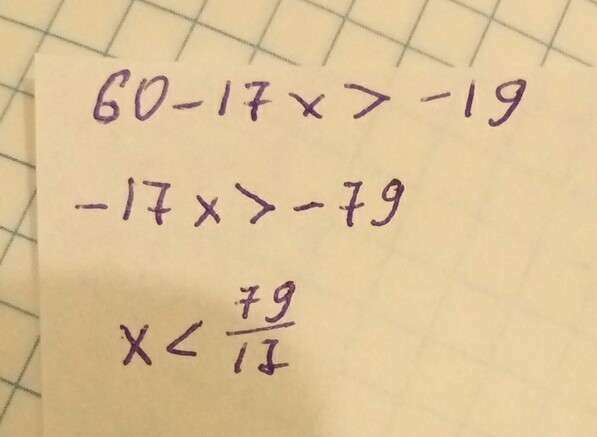 60-17x > -19
-17x > -79
x < 79/17